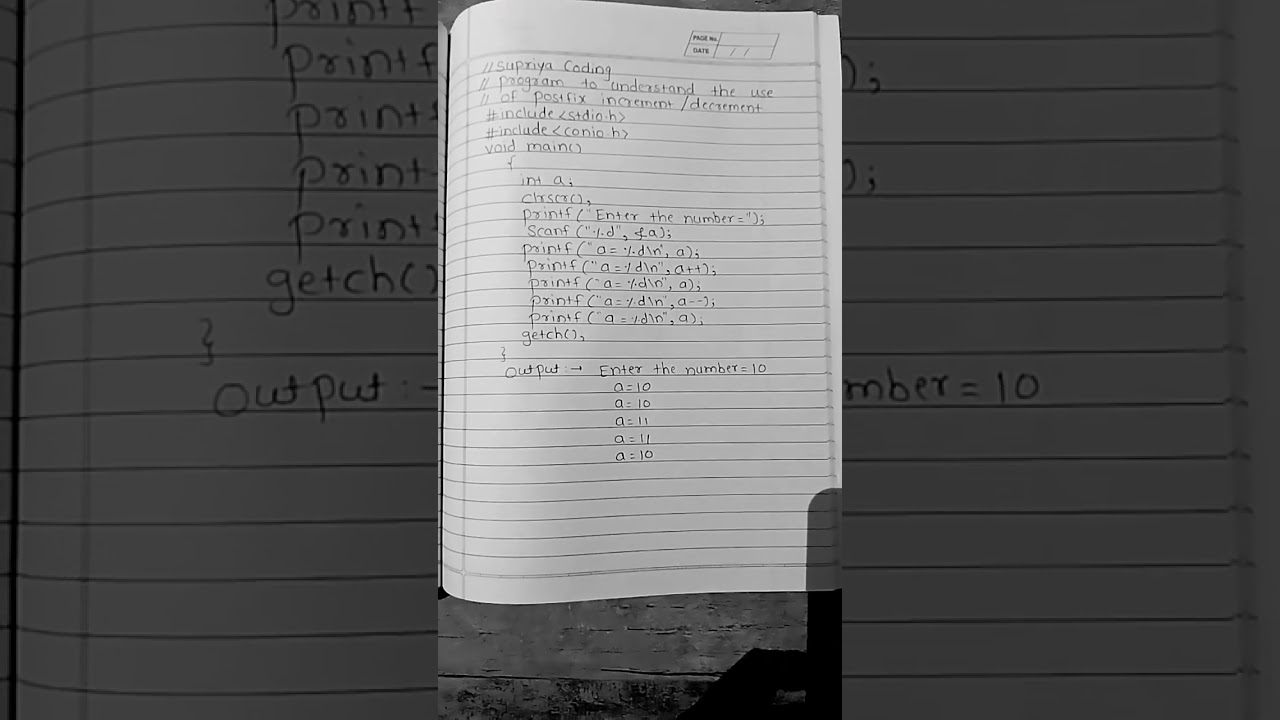 PAGE No.
DATE / /
// Supriya Coding
// program to understand the use
// of postfix increment /decrement
#include<stdio.h>
#include<conio.h>
void main()
{
int a;
clrscr();
printf("Enter the number=");
Scanf("%d", &a);
printf("a= %d\n", a);
printf("a=%d\n", a++);
printf("a= %d\n", a);
printf("a=%d\n", a--);
printf("a=%d\n", a);
getch();
}
Output:→ Enter the number=10
a=10
a=10
a=11
a=11
a=10
printf
printf
print
print
print
getch()
}
Output:-
);
);
mber=10